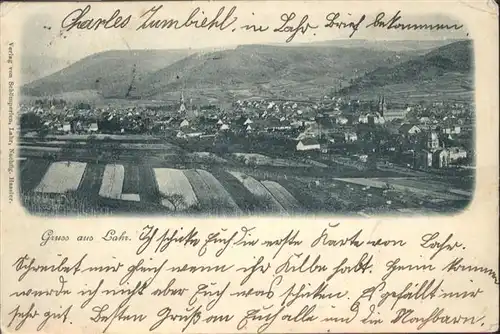 Charles Zumbiehl, in Lahr, Brief bekommen
Verlag von Schömperlen, Lahr,
Gruss aus Lahr. Ich schicke Euch die erste Karte von Lahr.
Schreibet mir gleich wenn ihr Kilbe habt. Heim kommen
werde ich nicht aber Euch was schicken. Es gefällt mir
sehr gut. Besten Gruß an Euch alle und die Nachbarn.